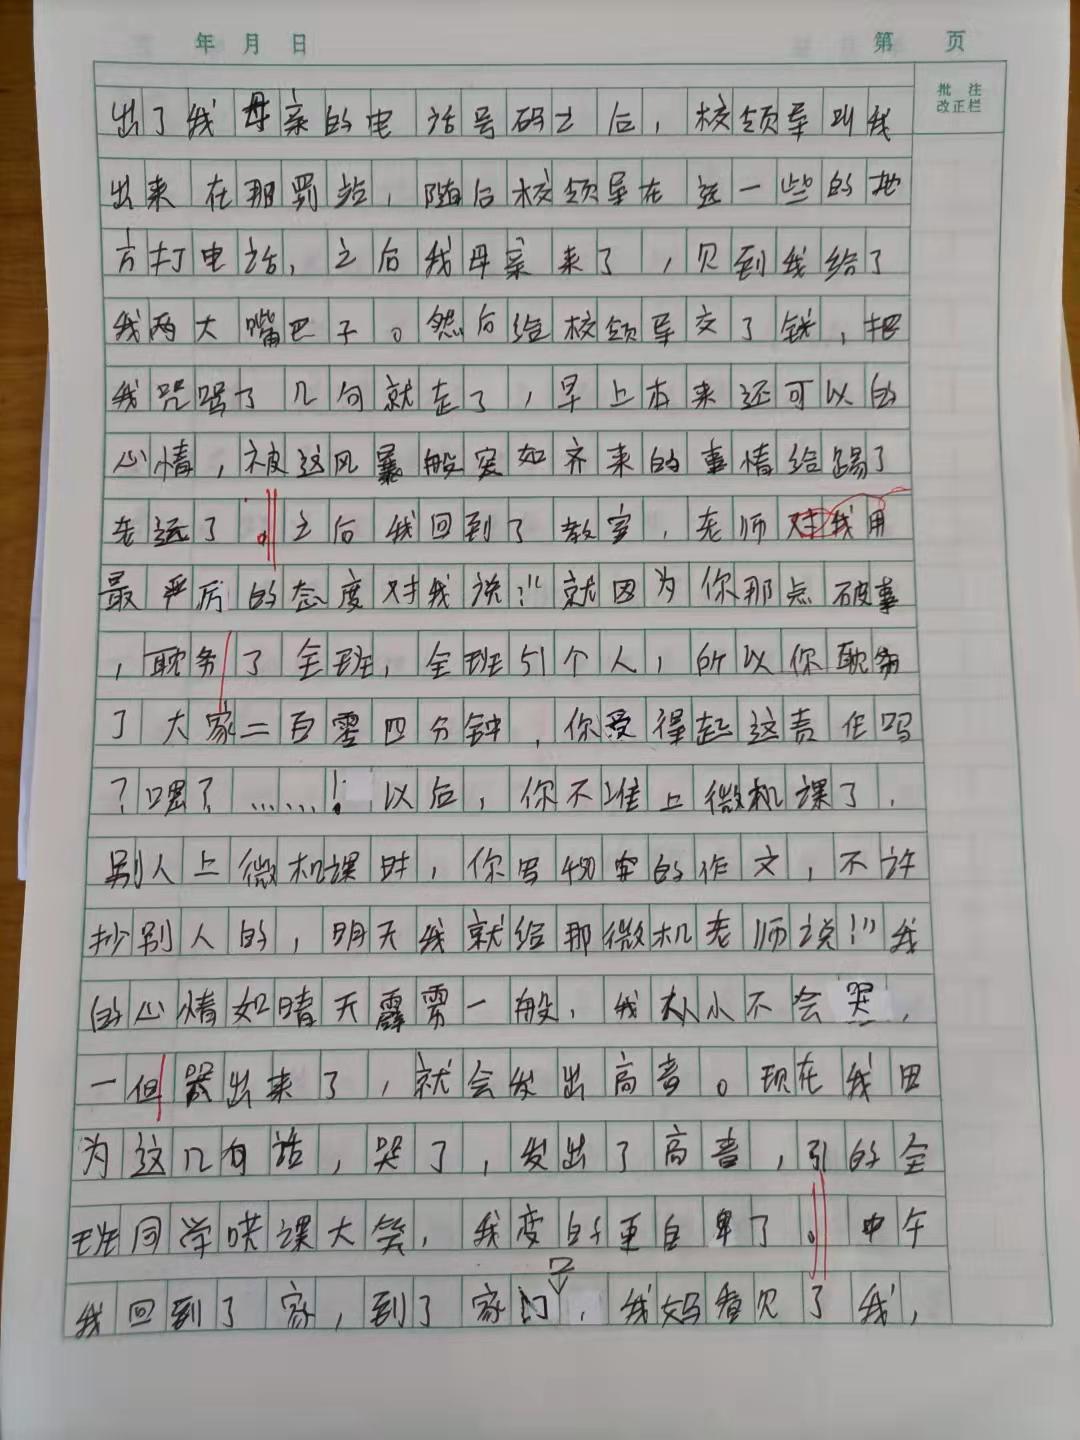 年 月 日 第 页
批 注
改正栏
出了我母亲的电话号码之后，校领导叫我
出来在那罚站，随后校领导在远一些的地
方打电话，之后我母亲来了，见到我给了
我两大嘴巴子。然后给校领导交了钱，把
我咒骂了几句就走了，早上本来还可以的
心情，被这风暴般突如齐来的事情给踢了
老远了。之后我回到了教室，老师对我用
最严厉的态度对我说："就因为你那点破事
，耽务了全班，全班51个人，所以你耽务
了大家二百零四分钟，你受得起这责任吗
？嘿？……！以后，你不准上微机课了，
别人上微机课时，你写的作文，不许
抄别人的，明天我就给那微机老师说！"我
的心情如晴天霹雳一般，我从小不会哭，
一但哭出来了，就会发出高音。现在我因
为这几句话，哭了，发出了高音，引的全
班同学哄课大笑，我变的更自卑了。中午
我回到了家，到了家门口，我妈看见了我，